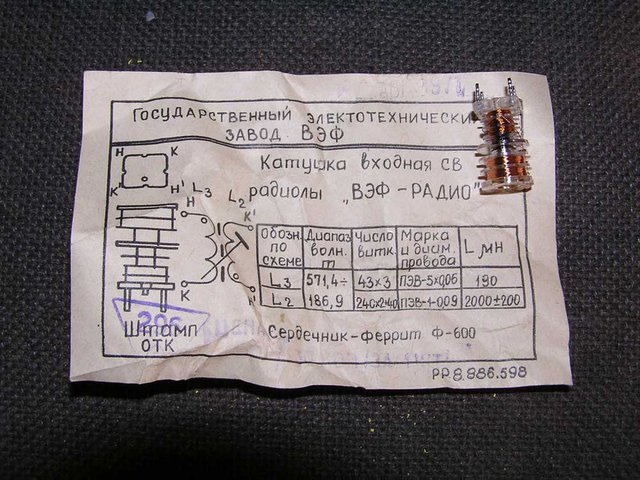 ГОСУДАРСТВЕННЫЙ ЭЛЕКТОТЕХНИЧЕСКИ
ЗАВОД ВЭФ
Катушка входная СВ
радиолы „ВЭФ-РАДИО"
Н К
К' Н'
L3 L2
Н К'
К Н
Обозн. по схеме Диапаз волн. m Число витк. Марка и диам. провода L мкН
L3 571,4÷ 43×3 ПЭВ-5×0,06 190
L2 186,9 240×2+40 ПЭВ-1-0,09 2000±200
206
Штамп
ОТК
Сердечник-феррит Ф-600
РР8.886.598